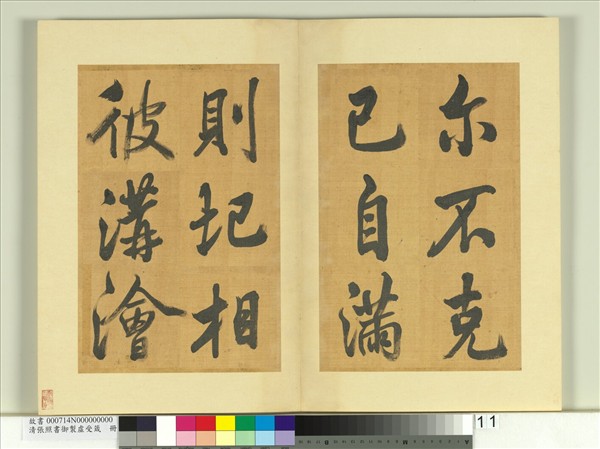 尔不克
己自滿
則圮相
彼溝澮
故書 000714N000000000
清張照書御製虛受箴 冊
11